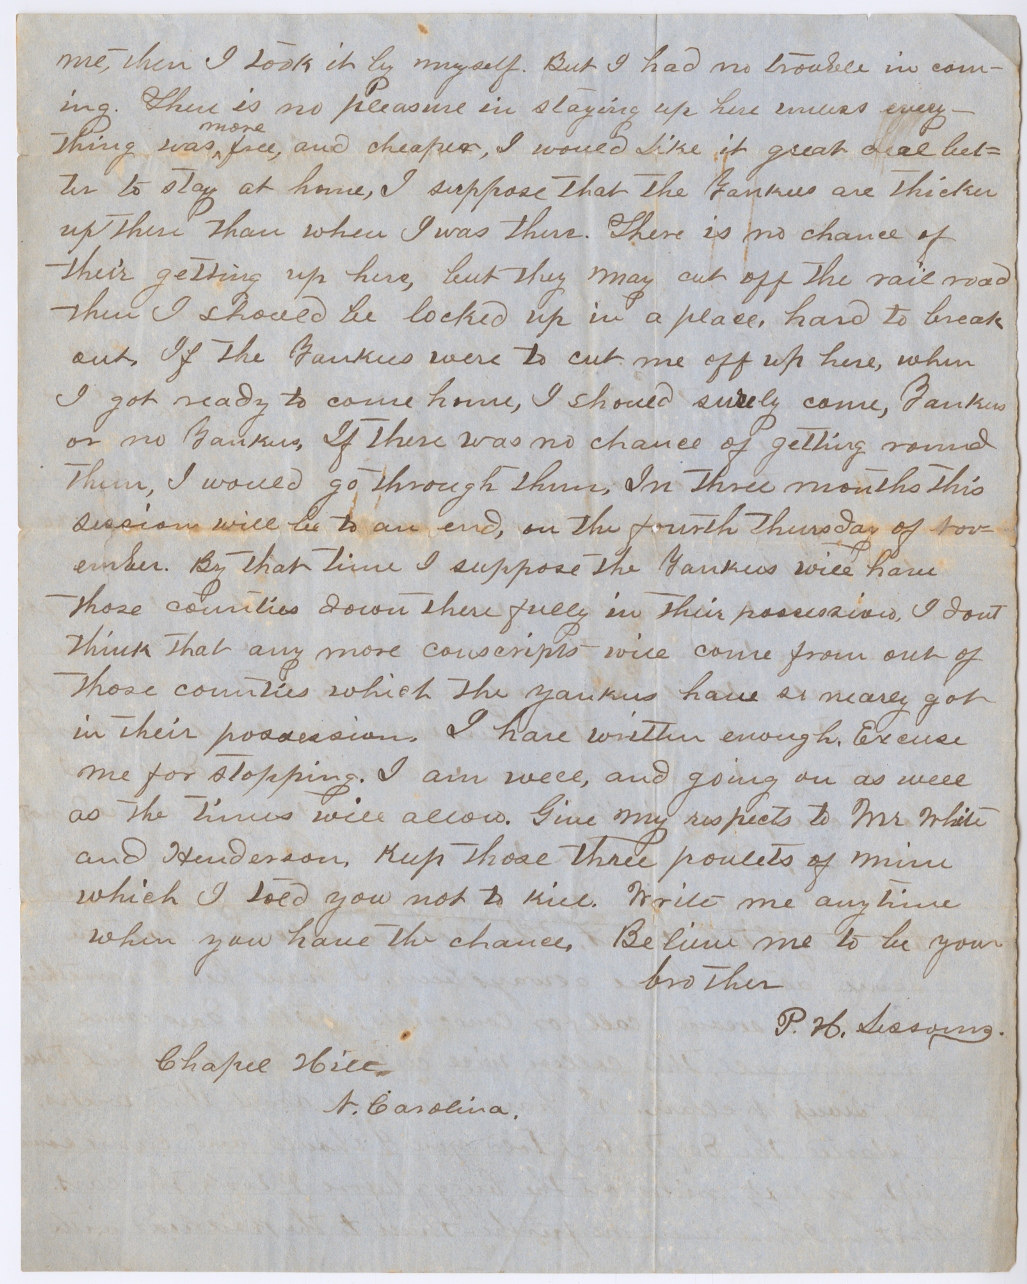 me, then I took it by myself. But I had no trouble in com-
ing. There is no pleasure in staying up here unless every-
more
thing was ^ free, and cheaper, I would like it great deal bet=
ter to stay at home, I suppose that the Yankees are thicker
up there than when I was there. There is no chance of
their getting up here, but they may cut off the rail road
then I should be locked up in a place, hard to break
out. If the Yankees were to cut me off up here, when
I got ready to come home, I should surely come, Yankees
or no Yankees, If there was no chance of getting round
them, I would go through them. In three months this
session will be to an end, on the fourth thursday of Nov=
ember. By that time I suppose the Yankees will have
those counties down there fully in their possession, I dont
think that any more conscripts will come from out of
those counties which the Yankees have so nearly got
in their possession. I have written enough. Excuse
me for stopping. I am well, and going on as well
as the times will allow. Give my respects to Mr White
and Henderson. Keep those three poulets of mine
which I told you not to kill. Write me anytime
when you have the chance. Believe me to be your
brother
P. H. Sessoms.
Chapel Hill
N. Carolina.